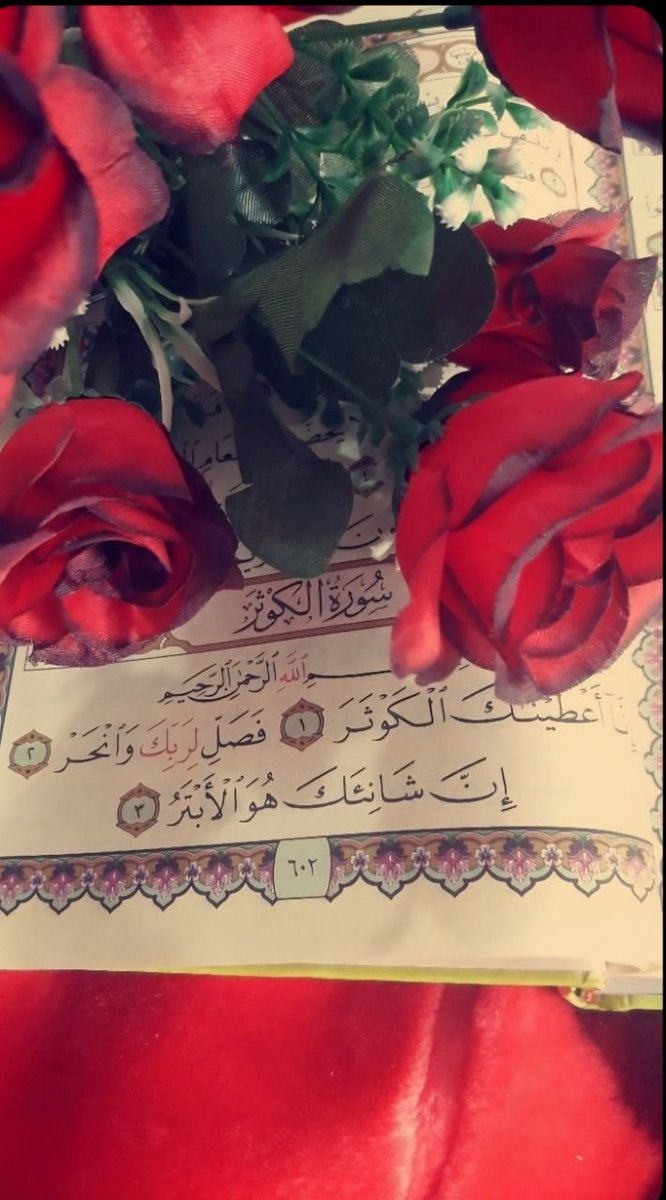 سُورَةُ الكَوْثَرِ
ٱللَّهِ ٱلرَّحْمَٰنِ ٱلرَّحِيمِ
أَعْطَيْنَٰكَ ٱلْكَوْثَرَ ١ فَصَلِّ لِرَبِّكَ وَٱنْحَرْ ٢
إِنَّ شَانِئَكَ هُوَ ٱلْأَبْتَرُ ٣
٦٠٢